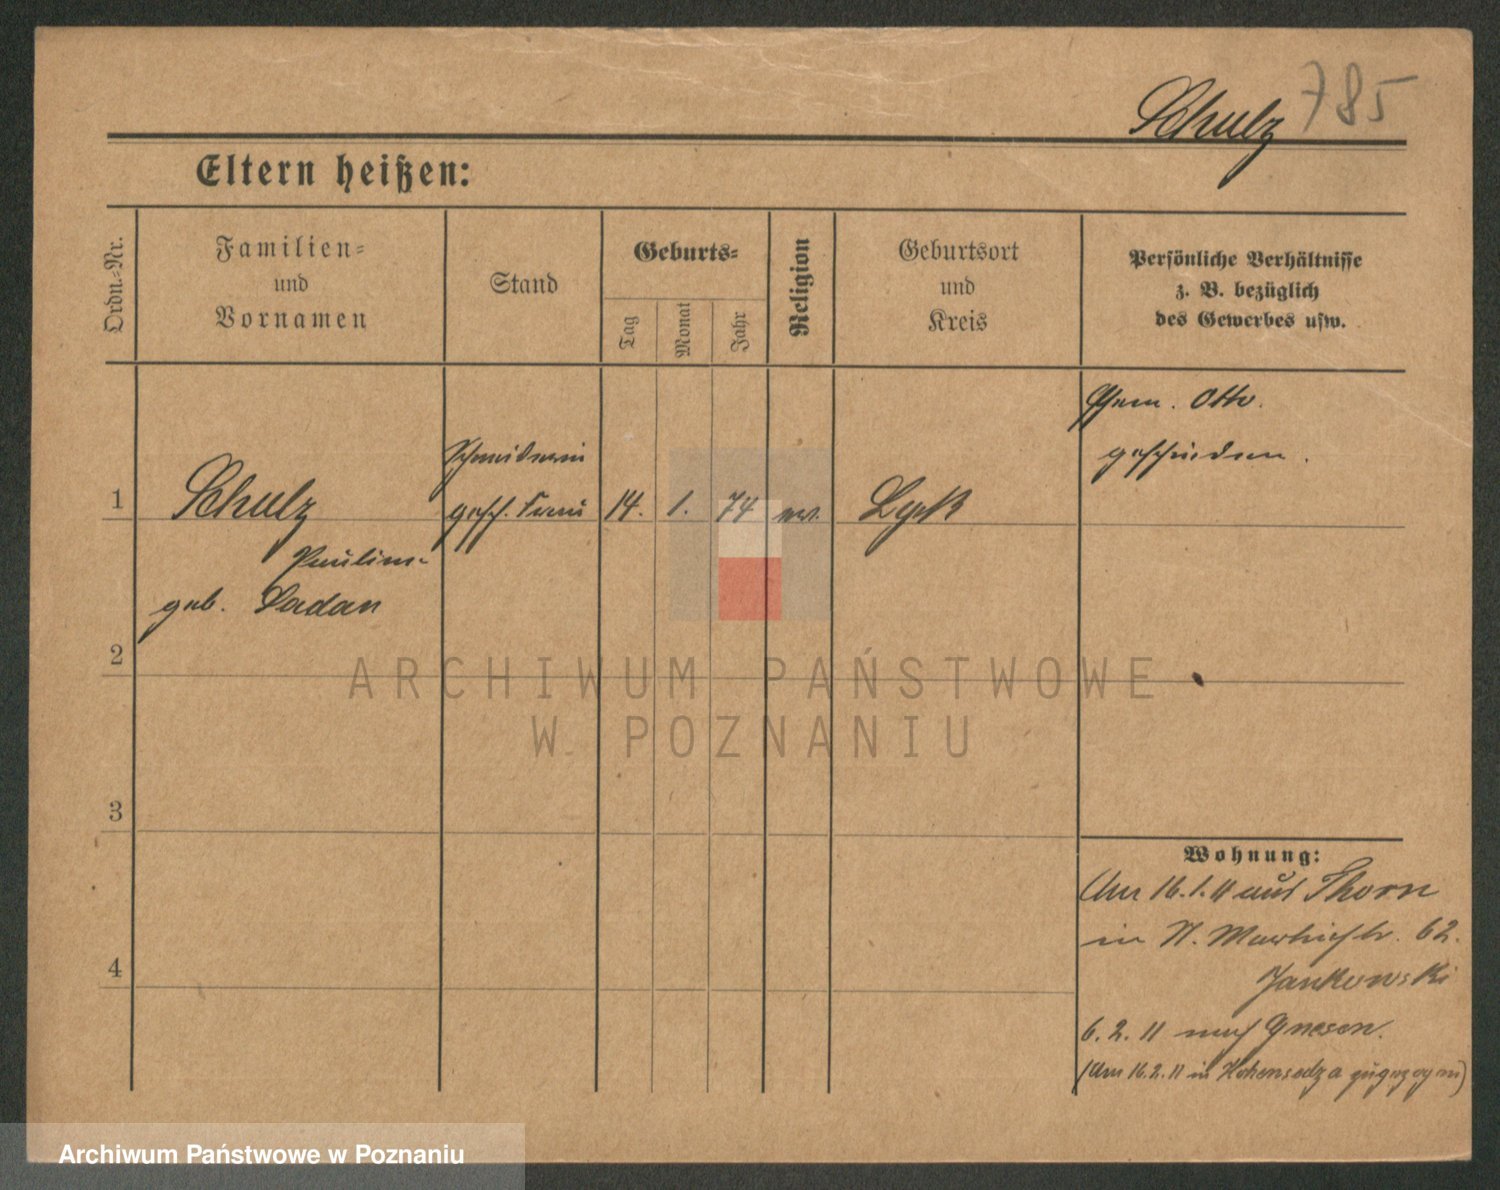 Schulz 785
Eltern heißen:
Ordn.-Nr.
Familien-
und
Vornamen
Stand
Geburts-
Tag
Monat
Jahr
Religion
Geburtsort
und
Kreis
Persönliche Verhältnisse
z. B. bezüglich
des Gewerbes usw.
Ehem. Otto.
geschieden.
Schneiderin
1 Schulz gesch. Frau 14. 1. 74 ev. Lyck
Pauline
geb. Sadan
2
3
4
Wohnung:
Am 16.1.11 aus Thorn
in N. 62.
Jankowski
6.2.11 nach Gnesen.
(Am 16.2.11 in Hohensalza zugezogen)
ARCHIWUM PAŃSTWOWE
W POZNANIU
Archiwum Państwowe w Poznaniu